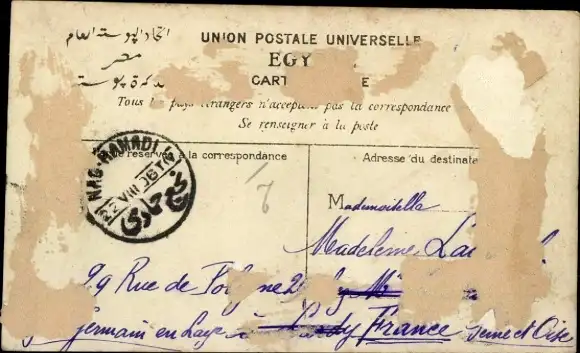 اتحاد البوستة العام
UNION POSTALE UNIVERSELLE
مصر
EGY
تذكرة بوستة
CART E
Tous les pays étrangers n'acceptent pas la correspondance
Se renseigner à la poste
réservé à la correspondance
Adresse du destinate
NAG-HAMADI
VIII 06
نجع حمادى
Mademoiselle
Madeleine Lau
99 Rue de
Germain en Laye France Seine et Oise